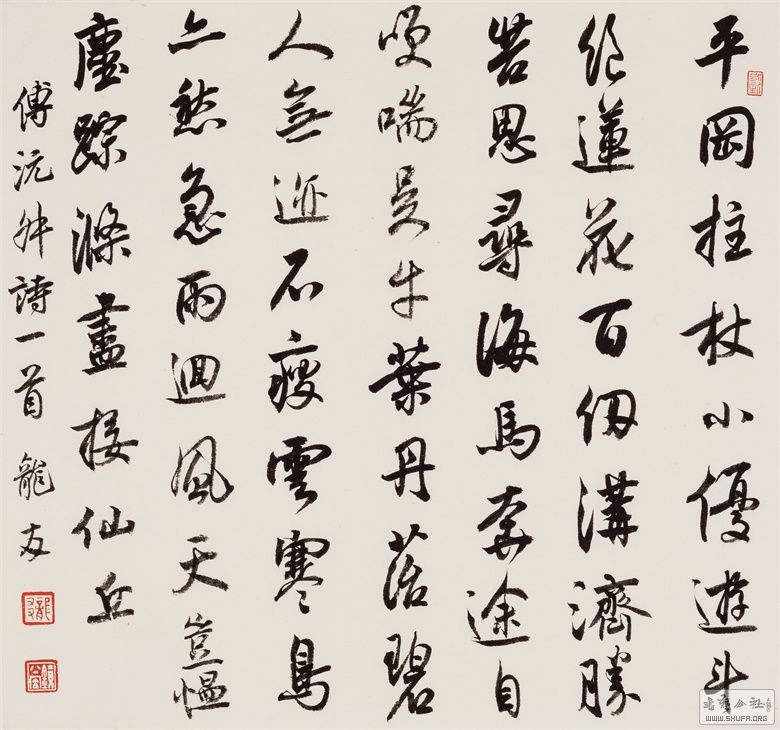 平岡拄杖小優遊斗
絕蓮花百仞溝濟勝
苦思尋海馬奔途自
哽喘吳牛葉丹苔碧
人無迹石瘦雲寒鳥
亦愁急雨迴風天豈慍
塵踪滌盡接仙丘
傅沅叔詩一首 龍友
龍友
書法公社
WWW.SHUFA.ORG